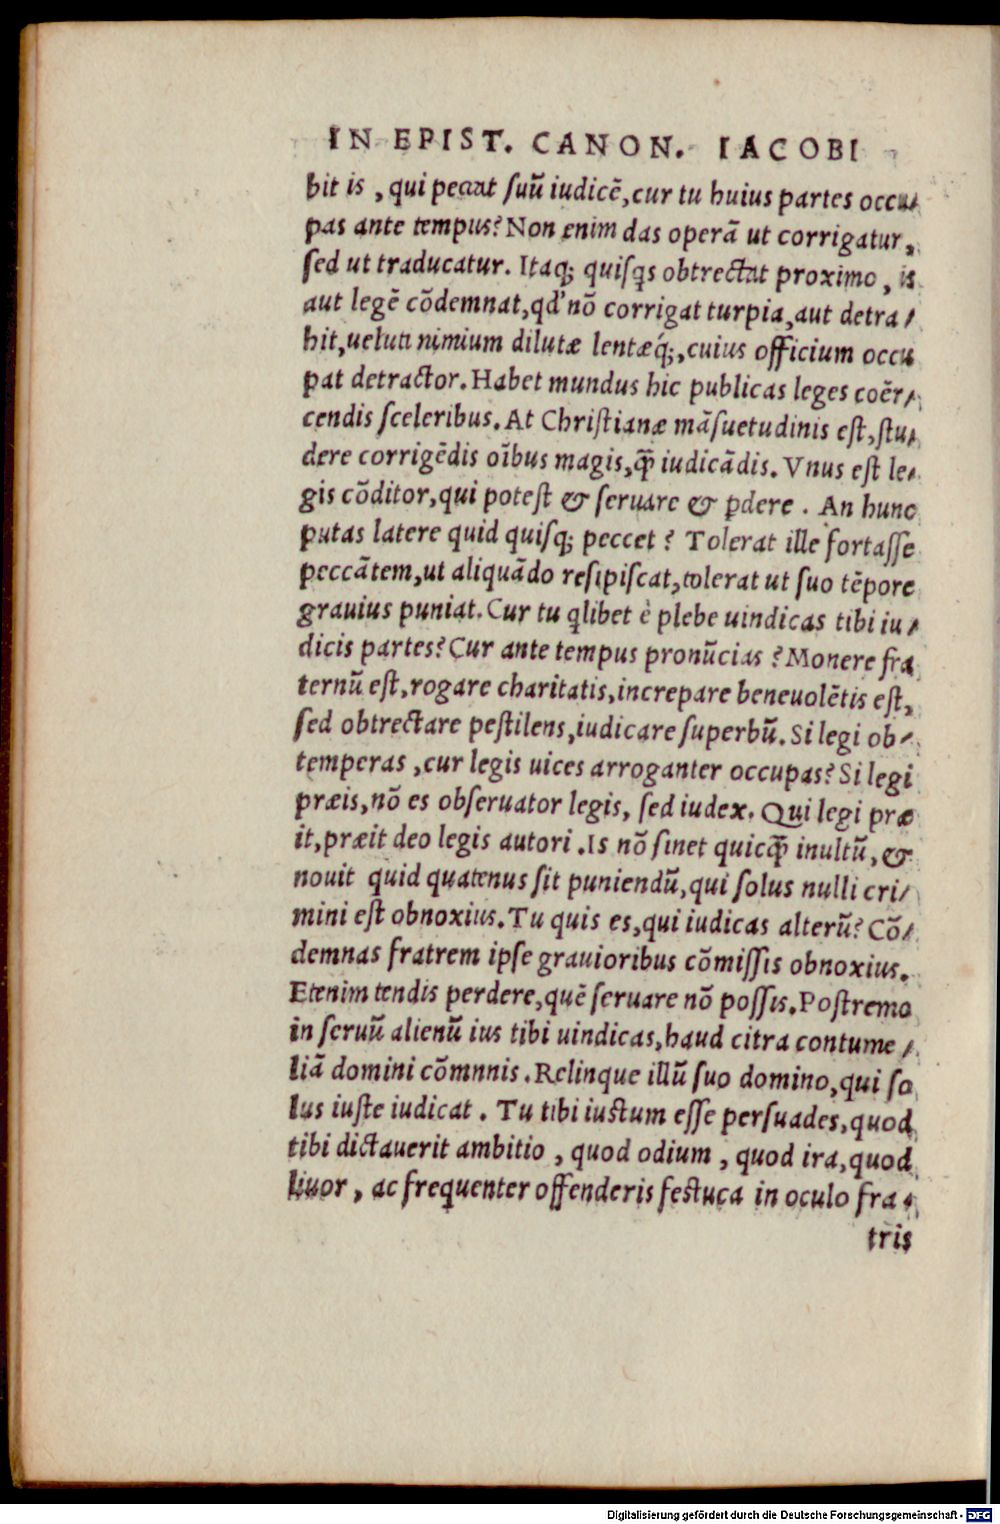 IN EPIST. CANON. IACOBI
bit is, qui peccat suũ iudicē, cur tu huius partes occu⸗
pas ante tempus? Non enim das operā ut corrigatur,
sed ut traducatur. Itaq; quisqs obtrectat proximo, is
aut legē cōdemnat, qd' nō corrigat turpia, aut detra⸗
hit, ueluti nimium dilutæ lentæq́;, cuius officium occu
pat detractor. Habet mundus hic publicas leges coër⸗
cendis sceleribus. At Christianæ māsuetudinis est, stu⸗
dere corrigēdis oībus magis, q̃ iudicādis. Vnus est le⸗
gis cōditor, qui potest & seruare & ꝑdere. An hunc
putas latere quid quisq; peccet? Tolerat ille fortasse
peccātem, ut aliquādo resipiscat, tolerat ut suo tēpore
grauius puniat. Cur tu qlibet è plebe uindicas tibi iu⸗
dicis partes? Cur ante tempus pronũcias? Monere fra
ternũ est, rogare charitatis, increpare beneuolētis est,
sed obtrectare pestilens, iudicare superbũ. Si legi ob⸗
temperas, cur legis uices arroganter occupas? Si legi
præis, nō es obseruator legis, sed iudex. Qui legi præ
it, præit deo legis autori. Is nō sinet quicq̃ inultũ, &
nouit quid quatenus sit puniendũ, qui solus nulli cri⸗
mini est obnoxius. Tu quis es, qui iudicas alterũ? Cō⸗
demnas fratrem ipse grauioribus cōmissis obnoxius.
Etenim tendis perdere, quē seruare nō possis. Postremo
in seruũ alienũ ius tibi uindicas, haud citra contume⸗
liā domini cōmnnis. Relinque illũ suo domino, qui so
lus iuste iudicat. Tu tibi iustum esse persuades, quod
tibi dictauerit ambitio, quod odium, quod ira, quod
liuor, ac frequenter offenderis festuca in oculo fra⸗
tris
Digitalisierung gefördert durch die Deutsche Forschungsgemeinschaft - DFG